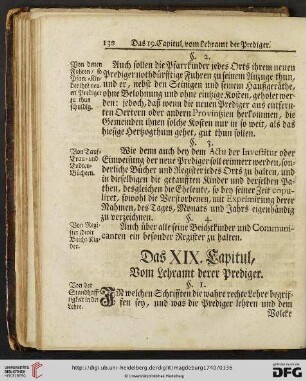 138 Das 19. Capitul, vom Lehramt der Prediger.
§. 2.
Von denen Fuhren, so
neu
er Prediger
zu thun
schuldig.
Auch sollen die Pfarrkinder jedes Orts ihrem neuen
Prediger nothdürftige Fuhren zu seinem Anzuge thun,
und er, nebst den Seinigen und seinem Hausgeräthe,
ohne Belohnung und ohne einzige Kosten, geholet wer-
den: jedoch, daß wenn die neuen Prediger aus entfern-
ten Oertern oder andern Provintzien herkommen, die
Gemeinden ihnen solche Kosten nur so weit, als das
hiesige Hertzogthum gehet, gut thun sollen.
§. 3.
Von Tauf-
Trau- und
Todten-
Büchern.
Wie denn auch bey dem Actu der Investitur oder
Einweisung der neue Prediger soll erinnert werden, son-
derliche Bücher und Register jedes Orts zu halten, und
in dieselbigen die getauften Kinder und derselben Pa-
then, desgleichen die Eheleute, so bey seiner Zeit copu-
liret, sowohl die Verstorbenen, mit Exprimirung derer
Nahmen, des Tages, Monats und Jahrs eigenhändig
zu verzeichnen.
§. 4.
Von Regi-
ster derer
Beicht-Kin-
der.
Auch über alle seine Beichtkinder und Communi-
canten ein besonder Register zu halten.
Das XIX. Capitul,
Vom Lehramt derer Prediger.
§. 1.
Von der
Standhaff-
tigkeit in der
Lehre.
IN welchen Schrifften die wahre rechte Lehre begrif-
fen sey, und was die Prediger lehren und dem
Volcke
http://digi.ub.uni-heidelberg.de/diglit/magdeburg1740/0156
© Universitätsbibliothek Heidelberg
gefördert durch die
DFG